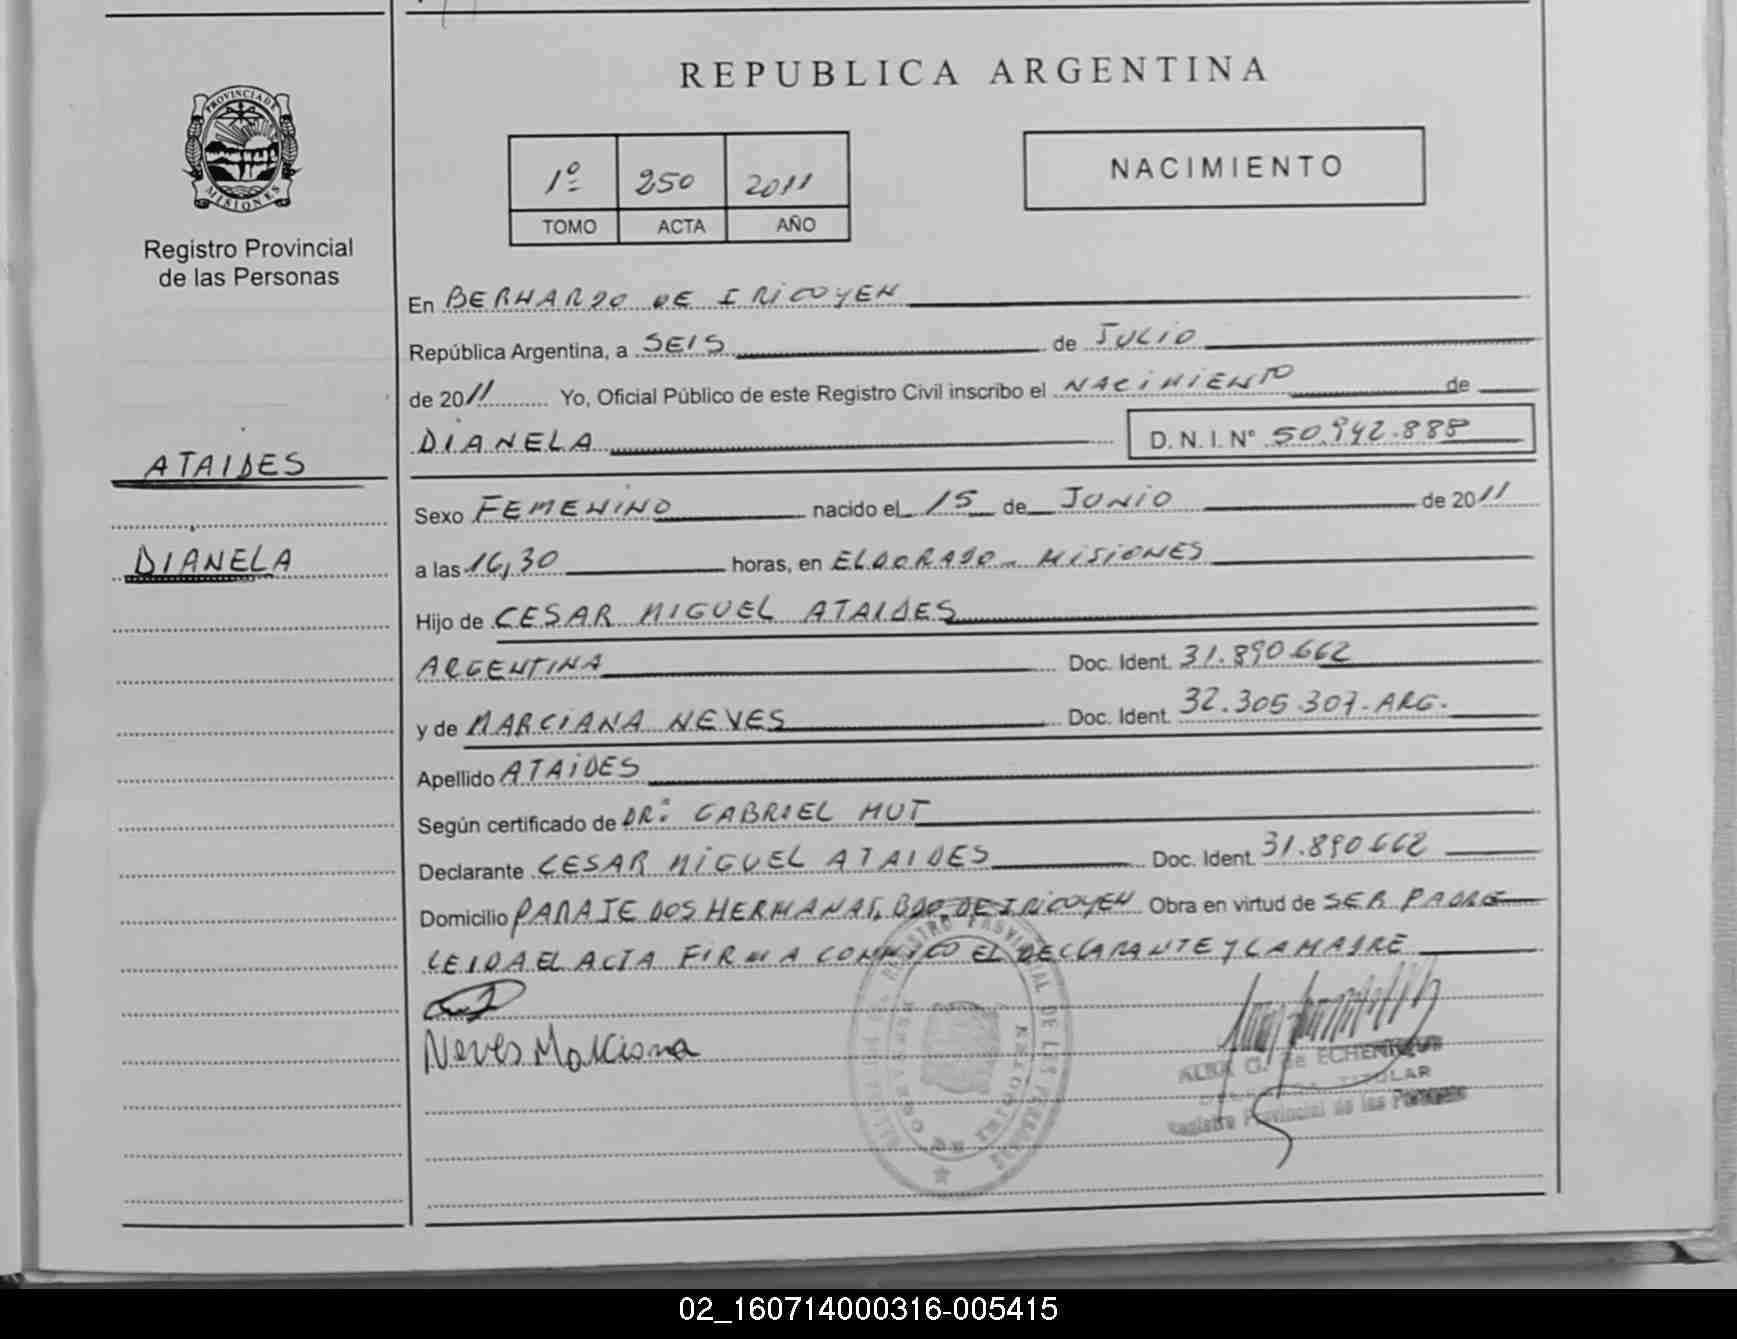 REPUBLICA ARGENTINA
PROVINCIA DE
MISIONES
Registro Provincial
de las Personas
1º 250 2011
TOMO ACTA AÑO
NACIMIENTO
En BERNARDO DE IRIGOYEN
República Argentina, a SEIS de JULIO
de 2011 Yo, Oficial Público de este Registro Civil inscribo el NACIMIENTO de
DIANELA D. N. I. Nº 50.942.888
ATAIDES
Sexo FEMENINO nacido el 15 de JUNIO de 2011
DIANELA
a las 16,30 horas, en ELDORADO - MISIONES
Hijo de CESAR MIGUEL ATAIDES
ARGENTINA Doc. Ident. 31.890.662
y de MARCIANA NEVES Doc. Ident. 32.305.307-ARG.
Apellido ATAIDES
Según certificado de DR: GABRIEL HUT
Declarante CESAR MIGUEL ATAIDES Doc. Ident. 31.890.662
Domicilio PARAJE DOS HERMANAS, BDO. DE IRIGOYEN Obra en virtud de SER PADRE
LEIDA EL ACTA FIRMA CONMIGO EL DECLARANTE Y LA MADRE
Neves Marciana
ALBA G. de ECHENIQUE
TITULAR
Registro Provincial de las Personas
REGISTRO PROVINCIAL DE LAS PERSONAS
02_160714000316-005415